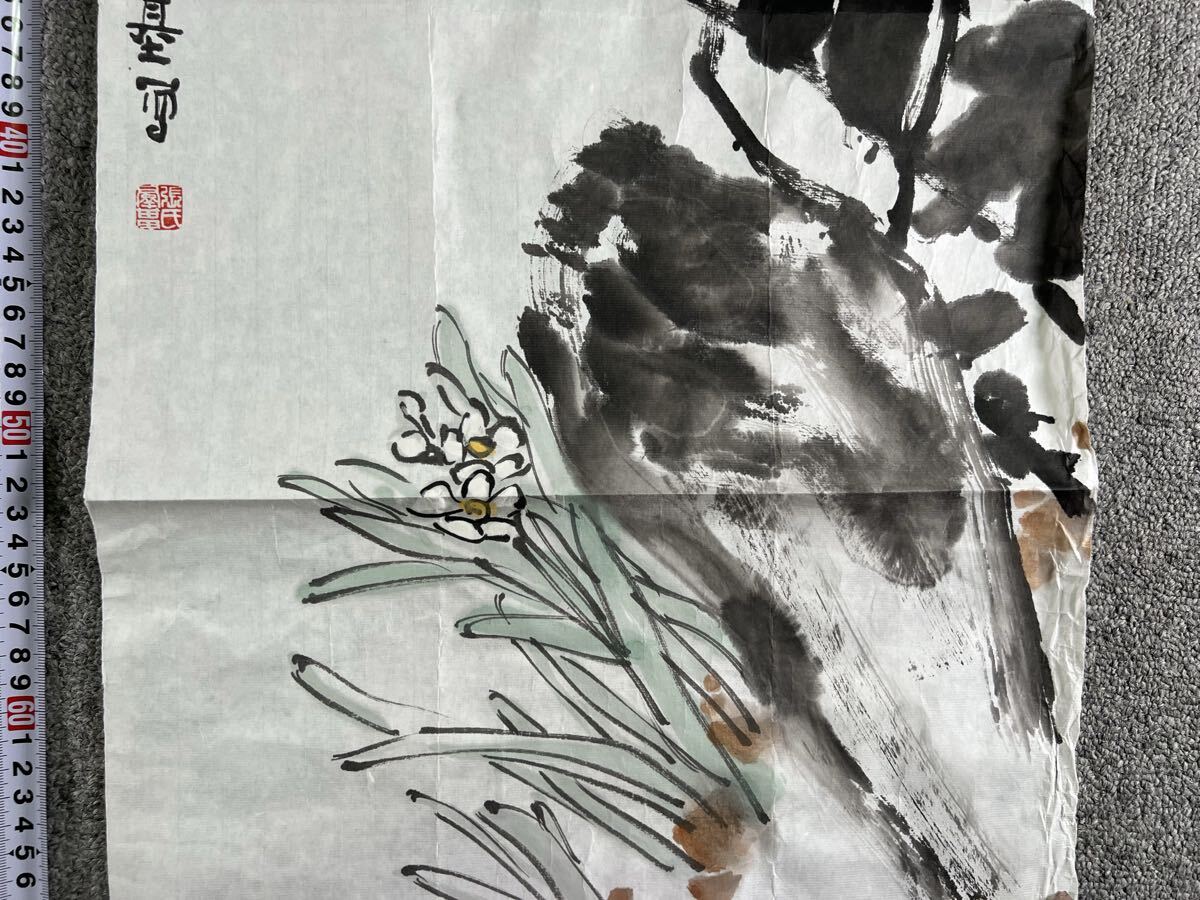 写
張氏
6 7 8 9 40 1 2 3 4 5 6 7 8 9 50 1 2 3 4 5 6 7 8 9 60 1 2 3 4 5 6